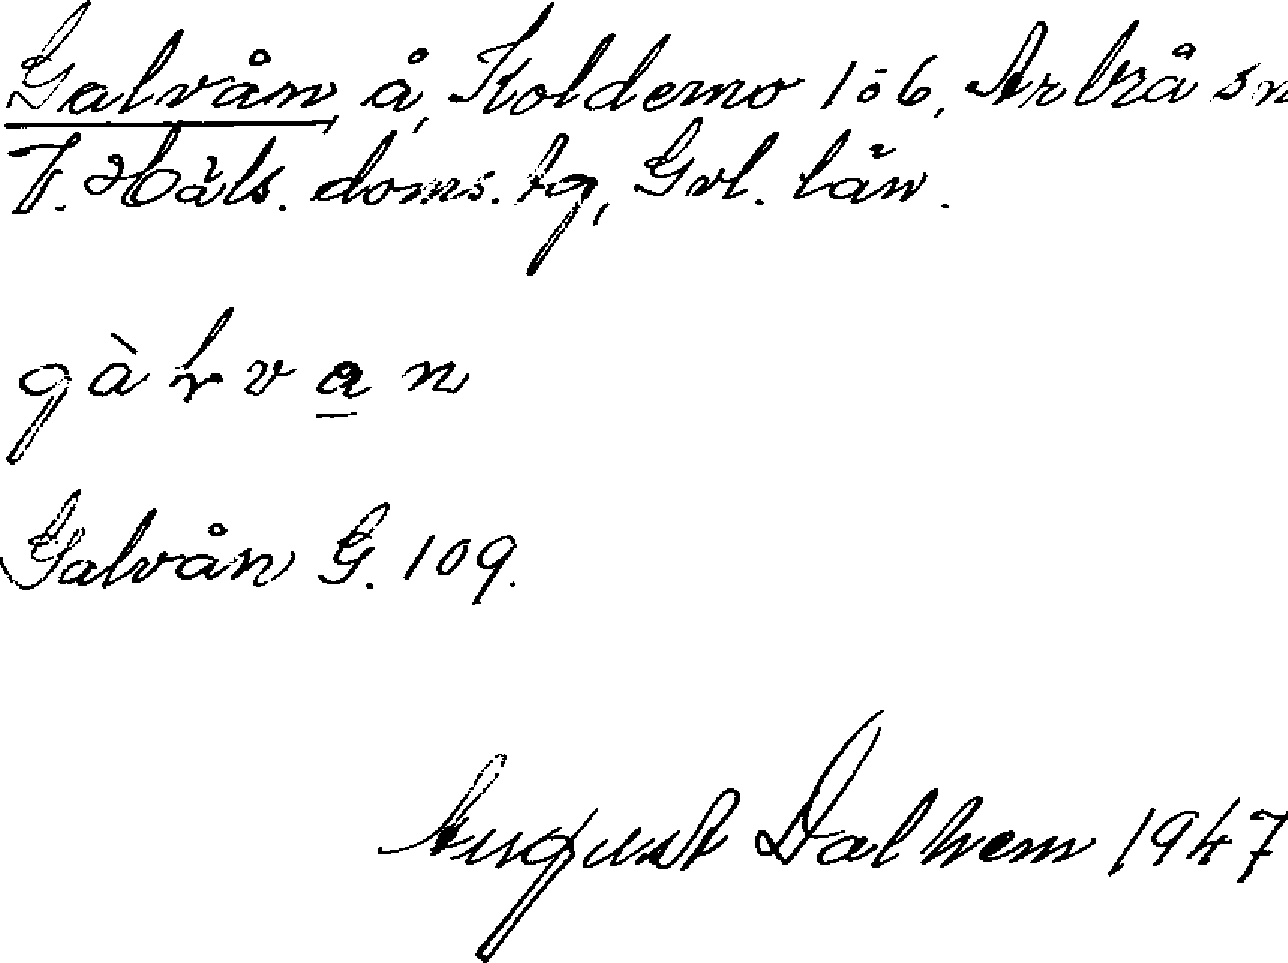 Galvån, å, Koldemo 1ō6, Arbrå sn
V. Häls. doms. tg, Gvl. län.
gàɫvan
Galvån G. 109.
August Dalhem 1947